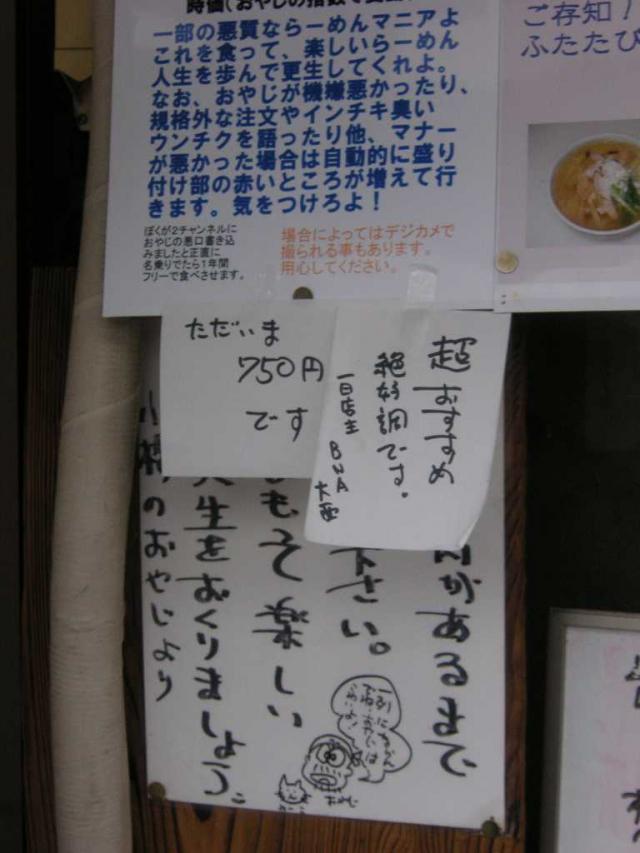 時価(おやじの指数で変
一部の悪質ならーめんマニアよ
これを食って、楽しいらーめん
人生を歩んで更生してくれよ。
なお、おやじが機嫌悪かったり、
規格外な注文やインチキ臭い
ウンチクを語ったり他、マナー
が悪かった場合は自動的に盛り
付け部の赤いところが増えて行
きます。気をつけろよ!
ぼくが2チャンネルに
おやじの悪口書き込
みましたと正直に
名乗りでたら1年間
フリーで食べさせます。
場合によってはデジカメで
撮られる事もあります。
用心してください。
ご存知!
ふたたび
ただいま
750円
です
超おすすめ
絶好調です。
一日店主
があるまで
下さい。
もって楽しい
人生をおくりましょう。
のおやじより